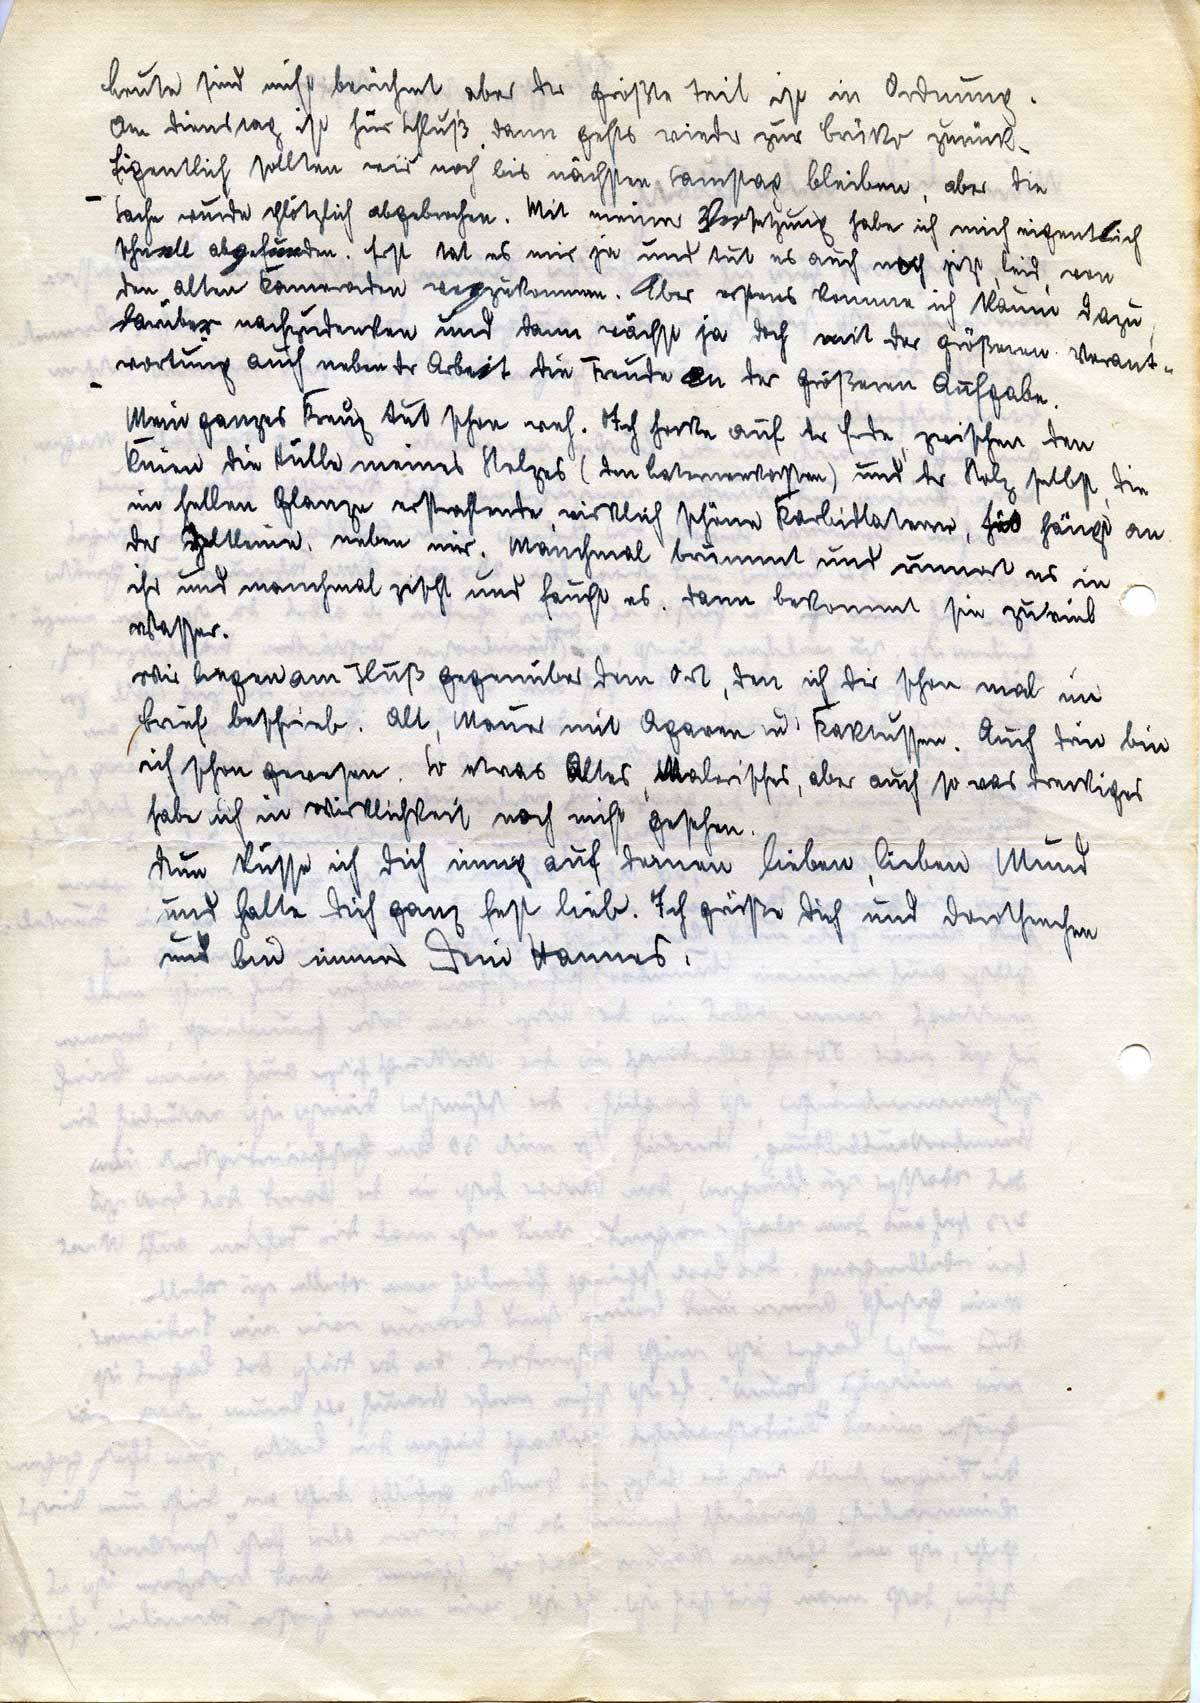 heute sind nicht berühmt aber der größte Teil ist in Ordnung.
Am Dienstag ist hier Schluß, dann gehts wieder zur Brüko zurück.
Eigentlich sollten wir noch bis nächsten Samstag bleiben, aber die
Sache wurde plötzlich abgebrochen. Mit meiner Versetzung habe ich mich eigentlich
schnell abgefunden. Erst tat es mir ja und tut es auch noch jetzt leid, von
den alten Kameraden wegzukommen. Aber erstens komme ich kaum dazu,
darüber nachzudenken und dann wächst ja doch mit der größeren Verant-
wortung auch neben der Arbeit die Freude an der größeren Aufgabe.
Mein ganzes Kreuz tut schon weh. Ich hocke auf der Erde, zwischen den
Knien die Hülle meines Stolzes (den Laternenkasten) und der Stolz selbst, die
im hellen Glanze erstrahlende, wirklich schöne Karbidlaterne, hängt an
der Zeltleine neben mir. Manchmal brummt und rumort es in
ihr und manchmal zischt und faucht es. dann bekommt sie zuviel
Wasser.
Wir liegen am Fluß gegenüber dem Ort, den ich dir schon mal im
Brief beschrieb. Alt, Mauer mit Agaven u. Kaktussen. Auch drin bin
ich schon gewesen. So etwas Altes, Malerisches, aber auch so was dreckiges
habe ich in Wirklichkeit noch nicht gesehen.
Nun küsse ich Dich innig auf deinen lieben, lieben Mund
und halte Dich ganz fest lieb. Ich grüße Dich und Dorthechen
und bin immer Dein Hannes.